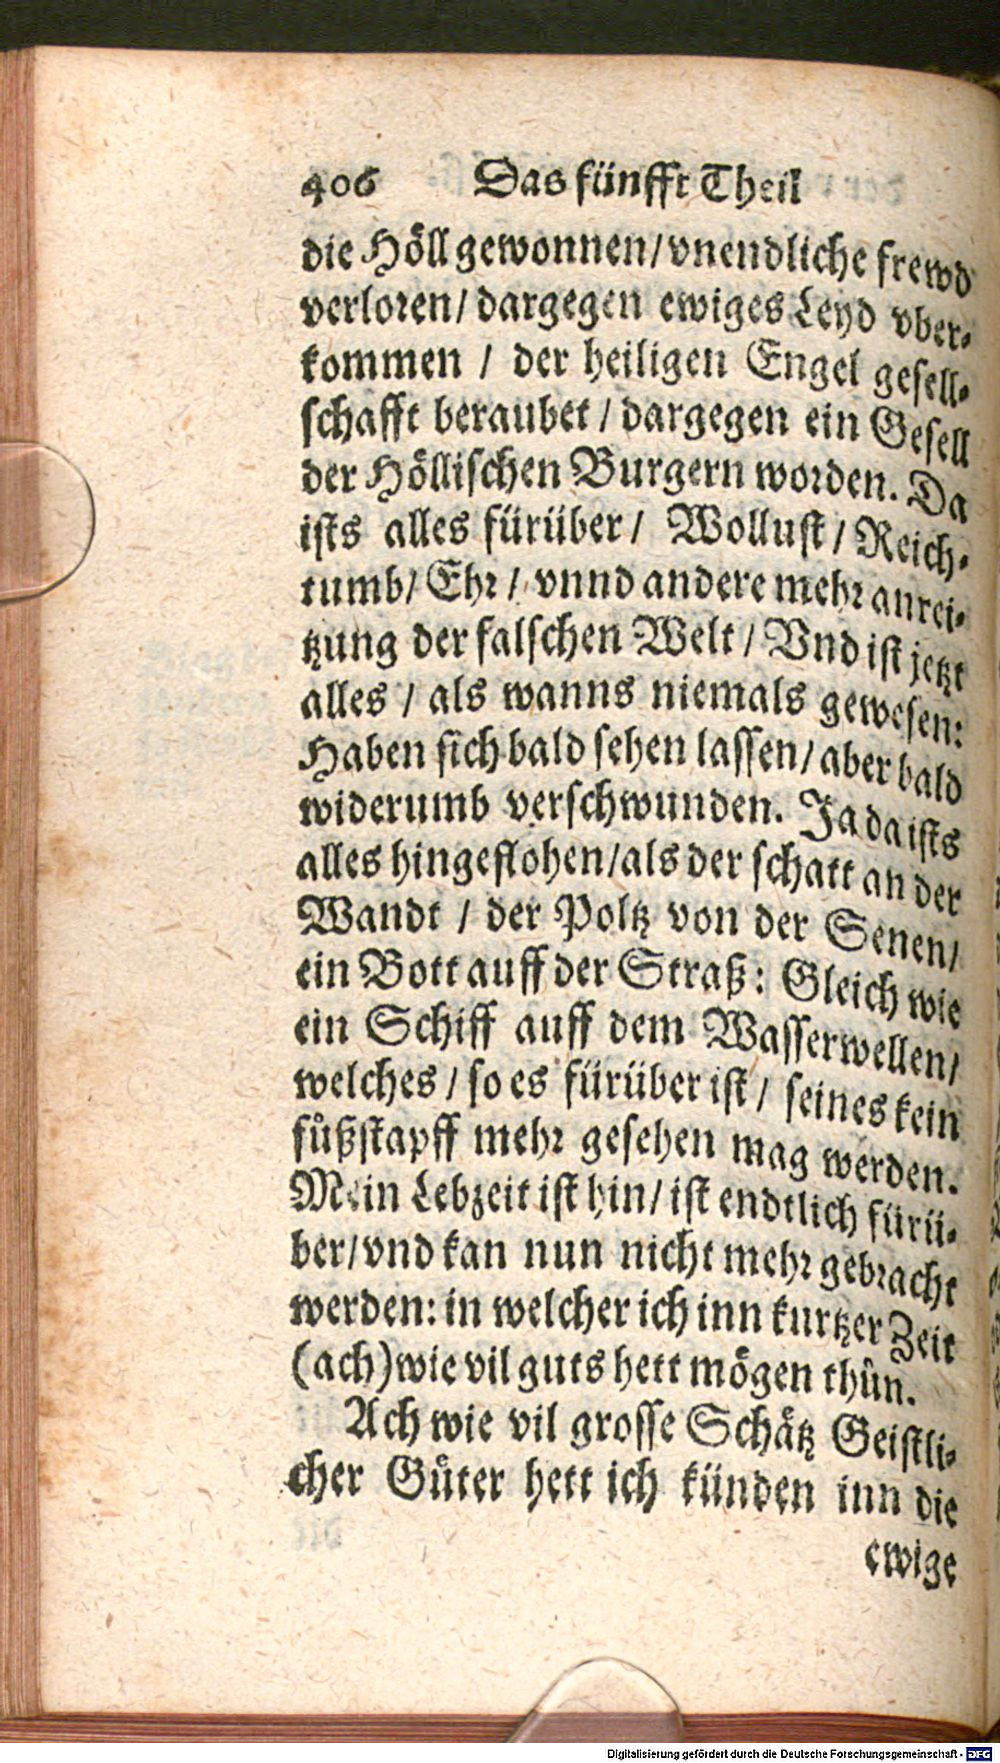 406 Das fünfft Theil
die Höll gewonnen/ vnendliche frewd
verloren/ dargegen ewiges Leyd vber-
kommen / der heiligen Engel gesell-
schafft beraubet / dargegen ein Gesell
der Höllischen Burgern worden. Da
ists alles fürüber / Wollust / Reich-
tumb/ Ehr / vnnd andere mehr anrei-
tzung der falschen Welt / Vnd ist jetzt
alles / als wanns niemals gewesen:
Haben sich bald sehen lassen/ aber bald
widerumb verschwunden. Ja da ists
alles hingeflohen/als der schatt an der
Wandt / der Poltz von der Senen/
ein Bott auff der Straß: Gleich wie
ein Schiff auff dem Wasserwellen/
welches / so es fürüber ist / seines kein
fůßstapff mehr gesehen mag werden.
Mein Lebzeit ist hin/ ist endtlich fürü-
ber/ vnd kan nun nicht mehr gebracht
werden: in welcher ich inn kurtzer Zeit
(ach) wie vil guts hett mögen thůn.
Ach wie vil grosse Schätz Geistli-
cher Güter hett ich künden inn die
ewige
Digitalisierung gefördert durch die Deutsche Forschungsgemeinschaft - DFG